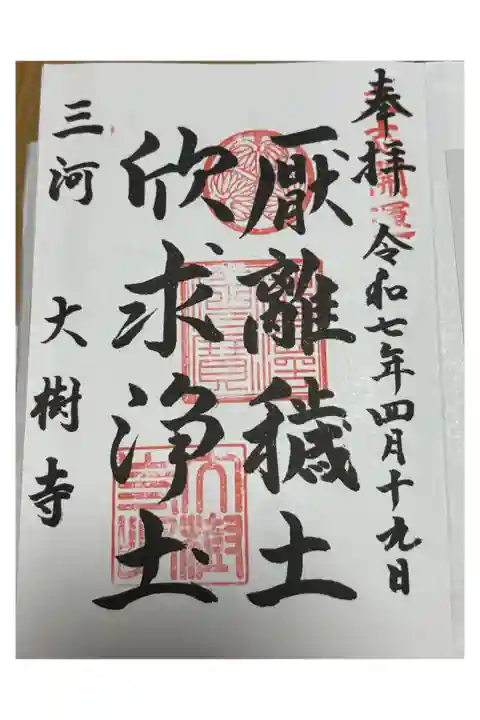 奉拝 令和七年四月十九日
開運
厭離穢土
欣求浄土
三河 大樹寺